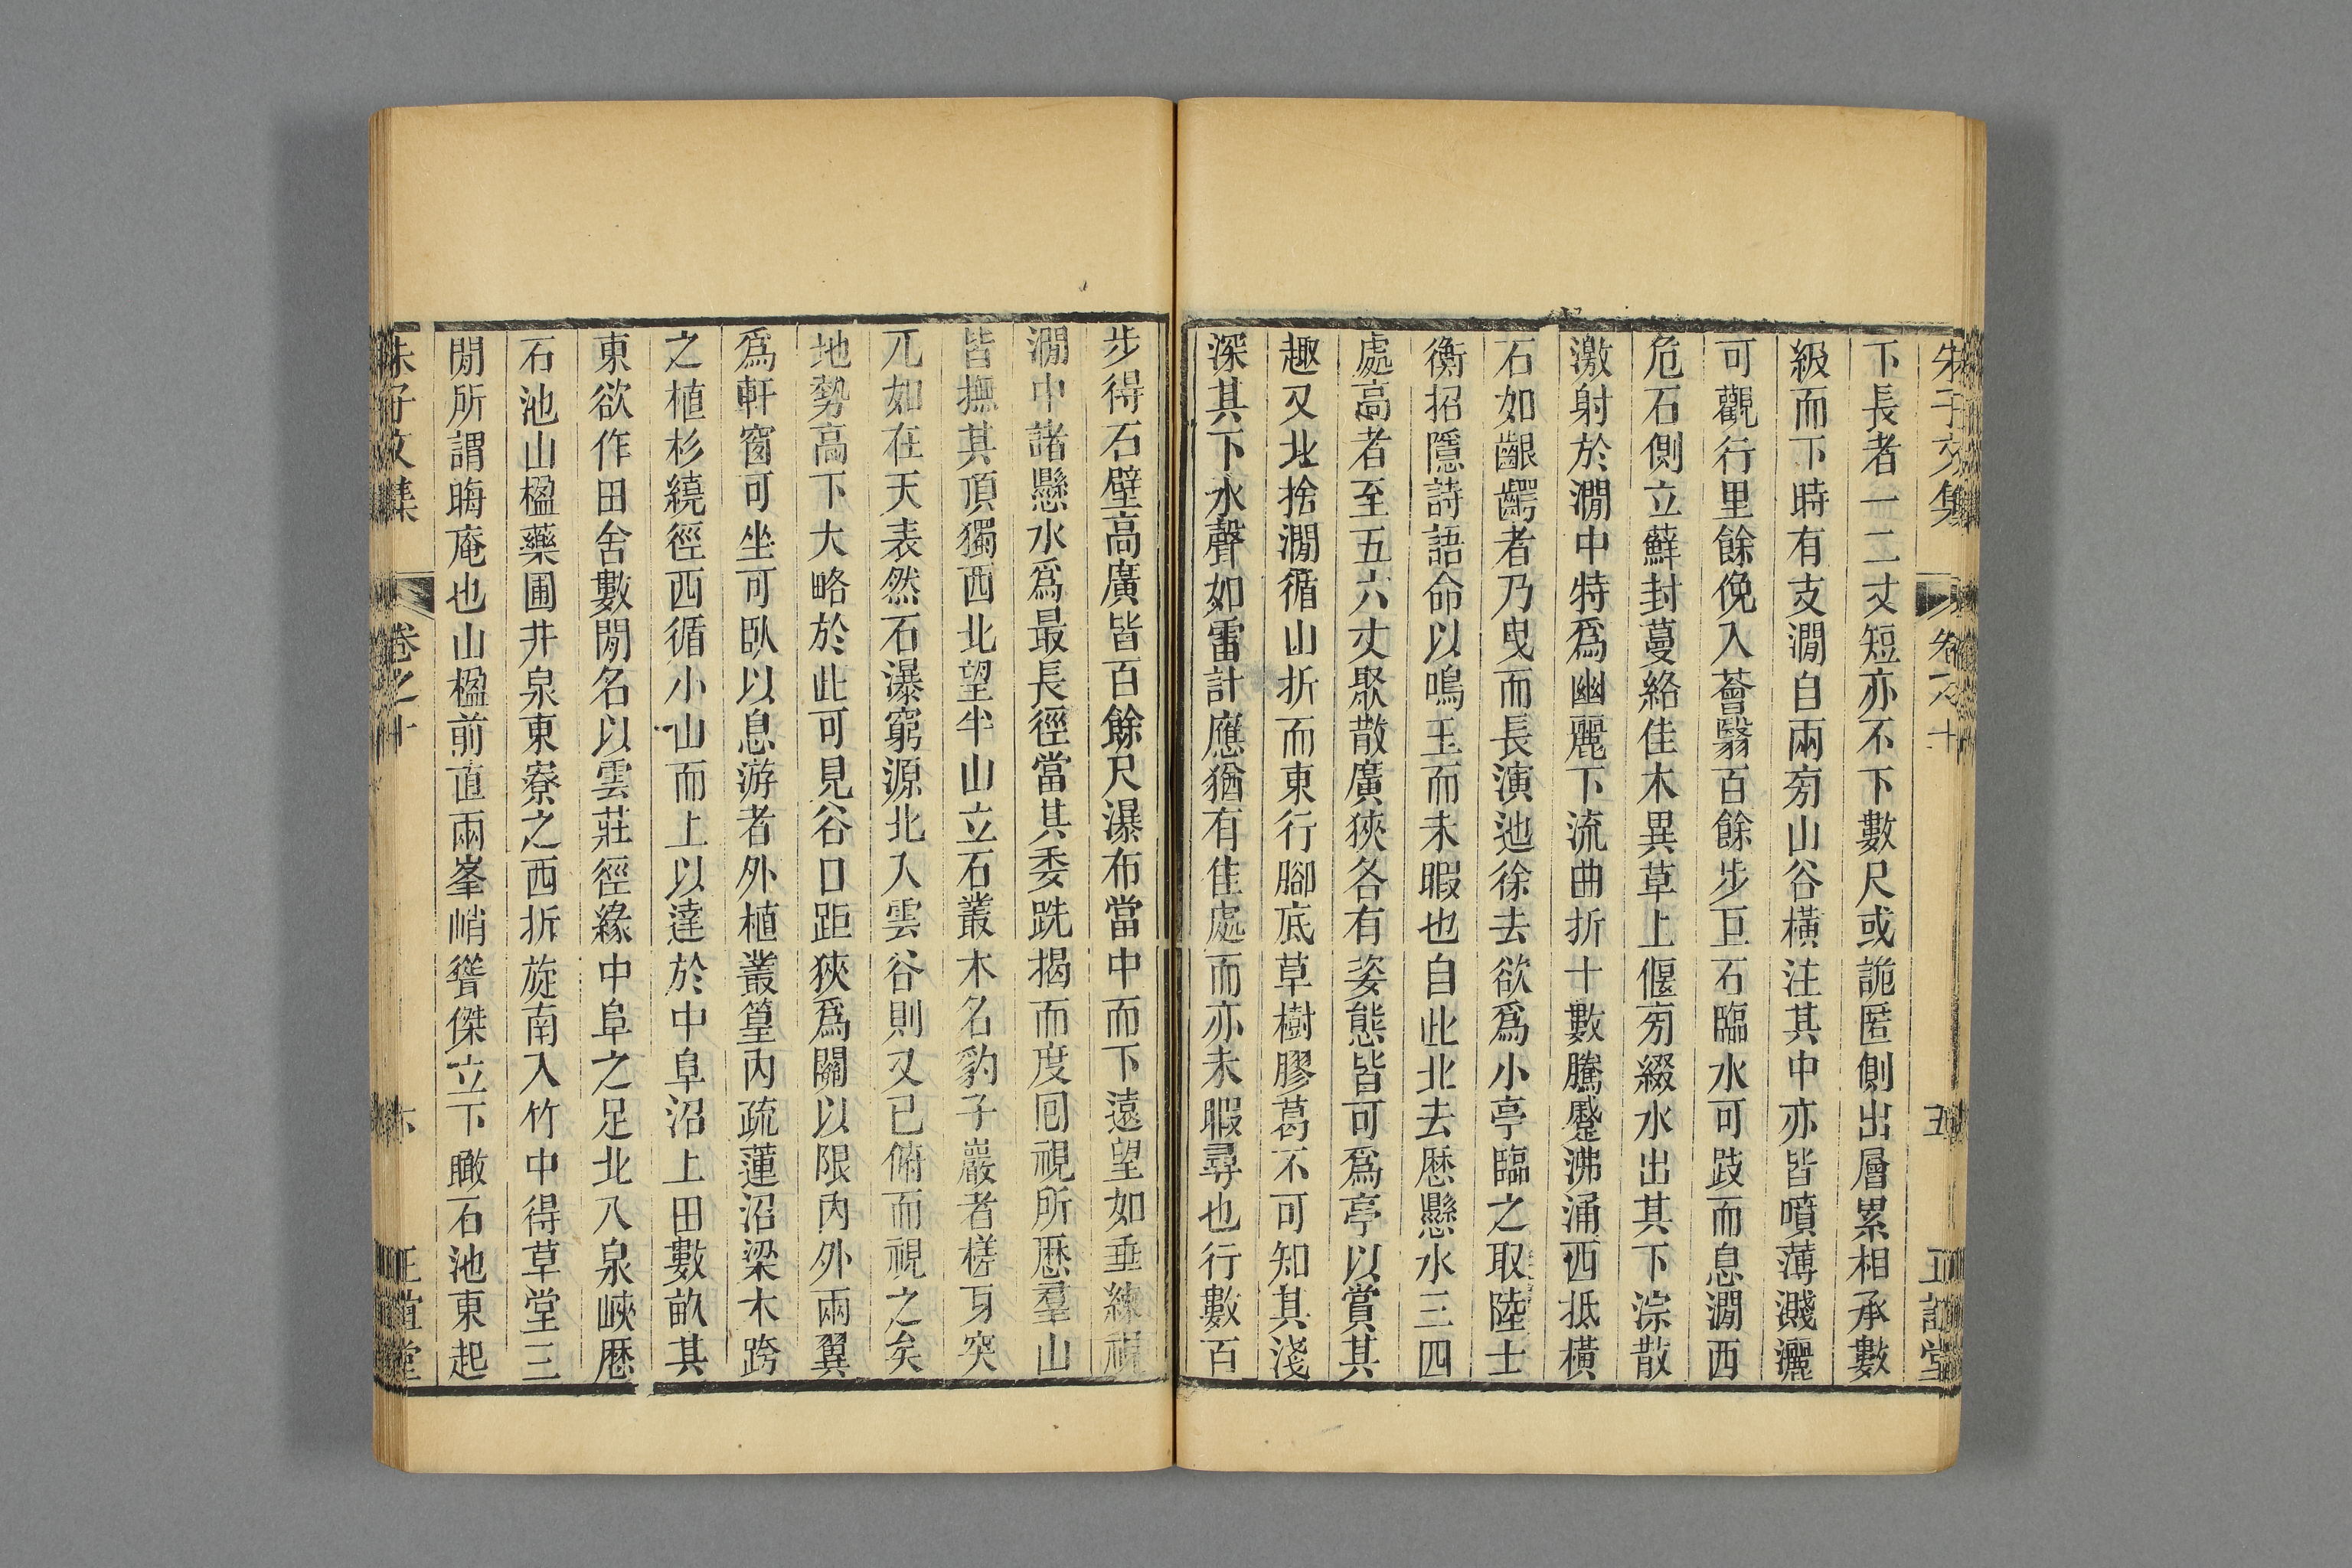 朱子文集 卷之十 五 正誼堂
下長者一二丈短亦不下數尺或詭匿側出層累相承數
級而下時有支澗自兩旁山谷橫注其中亦皆噴薄濺灑
可觀行里餘俛入薈翳百餘步巨石臨水可跂而息澗西
危石側立蘚封蔓絡佳木異草上偃旁綴水出其下淙散
激射於澗中特爲幽麗下流曲折十數騰蹙沸涌西抵橫
石如齦齶者乃曳而長演迆徐去欲爲小亭臨之取陸士
衡招隱詩語命以鳴玉而未暇也自此北去歷懸水三四
處高者至五六丈聚散廣狹各有姿態皆可爲亭以賞其
趣又北捨澗循山折而東行腳底草樹膠葛不可知其淺
深其下水聲如雷計應猶有佳處而亦未暇尋也行數百
步得石壁高廣皆百餘尺瀑布當中而下遠望如垂練視
澗中諸懸水爲最長徑當其委跣揭而度囘視所歷羣山
皆撫其頂獨西北望半山立石叢木名豹子巖者槎牙突
兀如在天表然石瀑窮源北入雲谷則又已俯而視之矣
地勢高下大略於此可見谷口距狹爲關以限內外兩翼
爲軒窗可坐可臥以息游者外植叢篁內疏蓮沼梁木跨
之植杉繞徑西循小山而上以達於中阜沼上田數畝其
東欲作田舍數閒名以雲莊徑緣中阜之足北入泉峽歷
石池山楹藥圃井泉東寮之西折旋南入竹中得草堂三
閒所謂晦庵也山楹前直兩峯峭聳傑立下瞰石池東起
朱子文集 卷之十 六 正誼堂